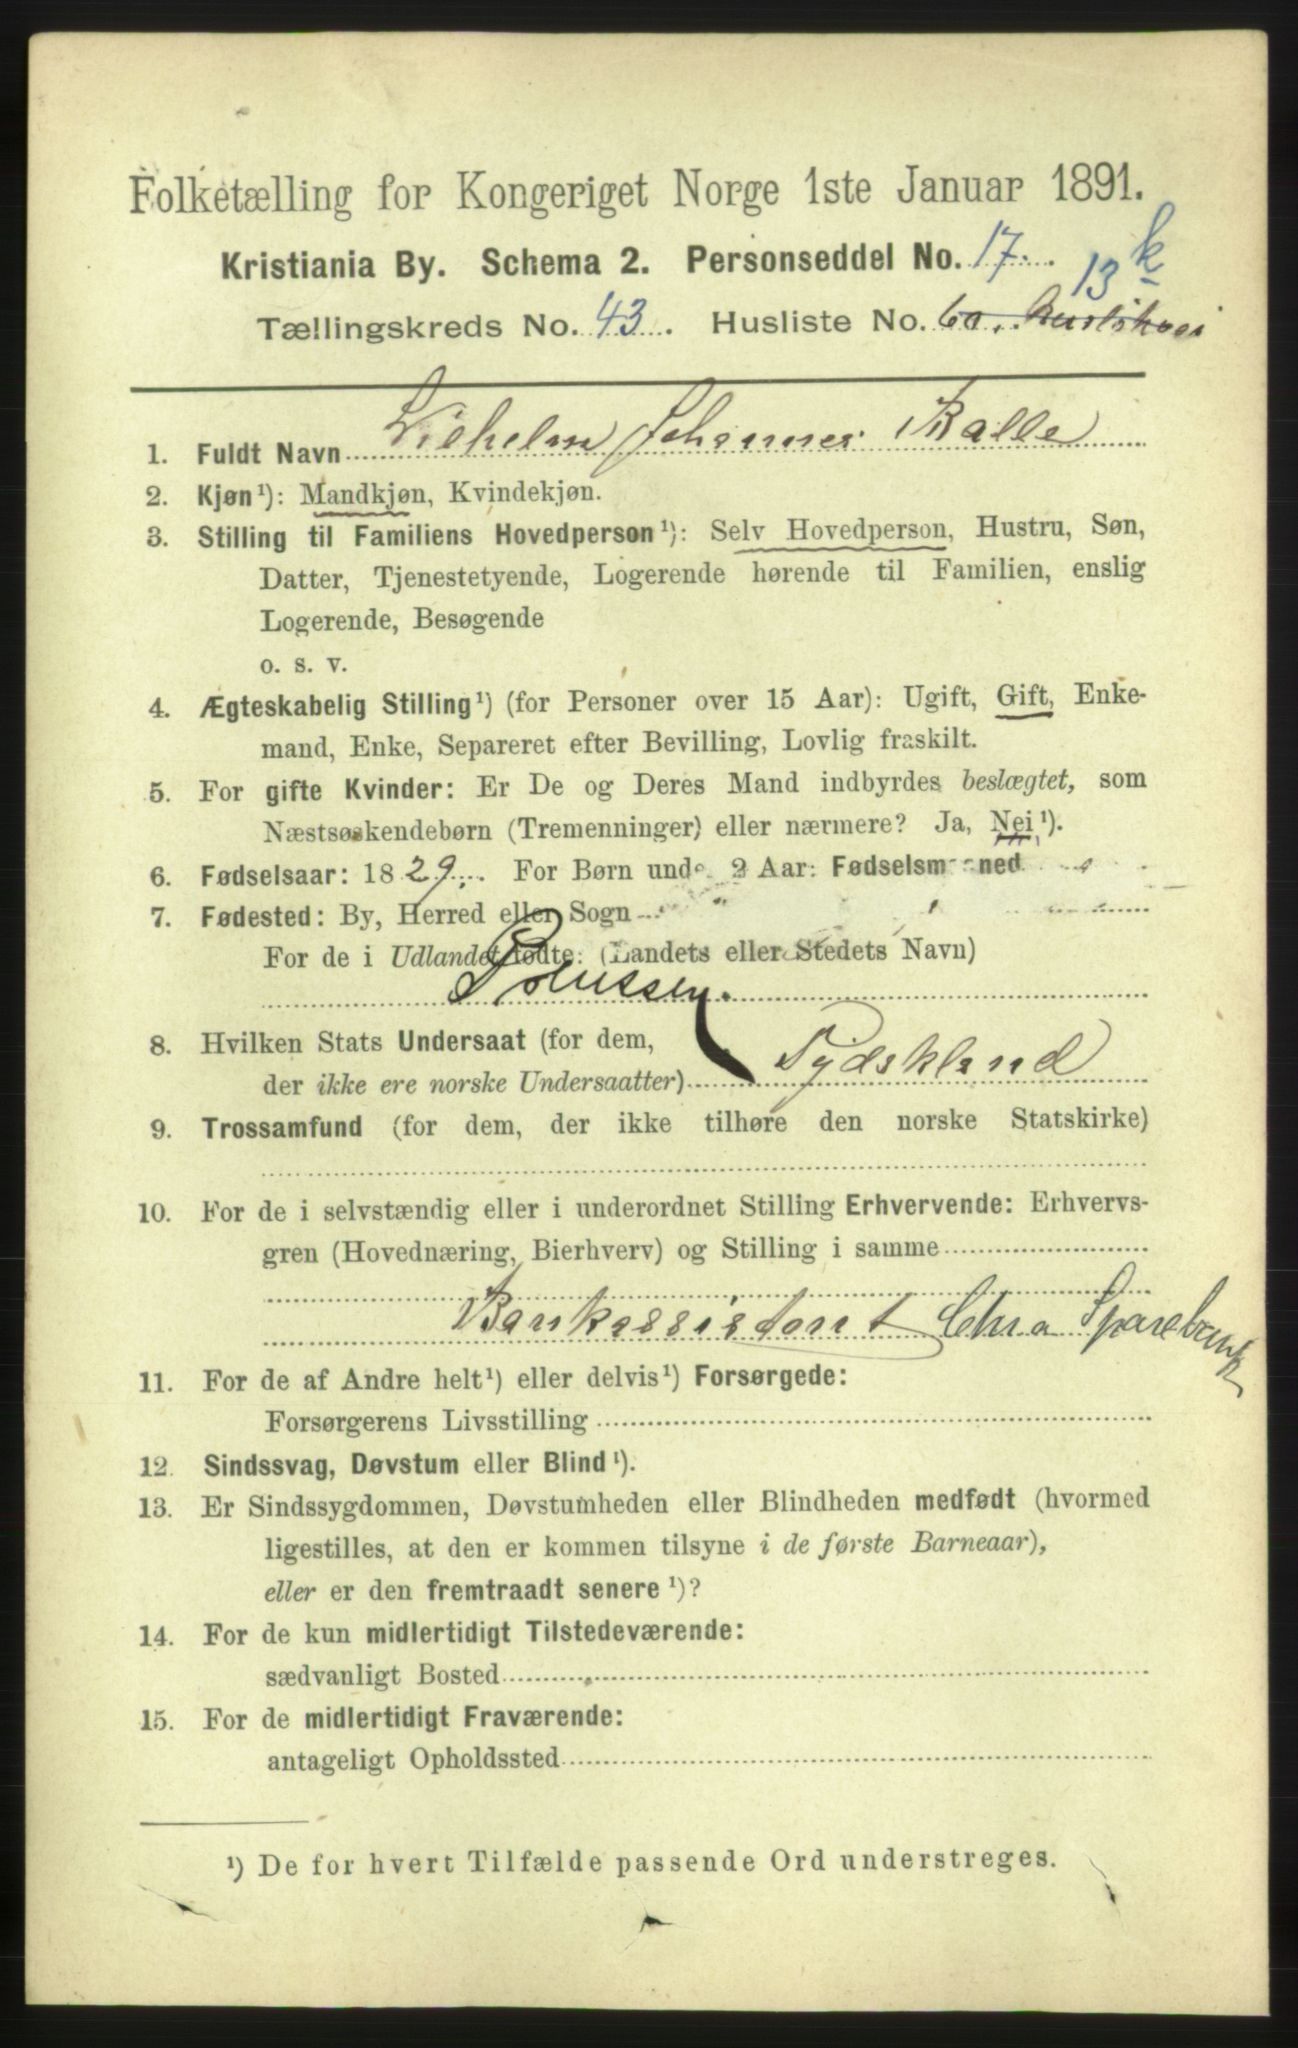 Folketælling for Kongeriget Norge 1ste Januar 1891.
Kristiania By. Schema 2. Personseddel No. 17.
13 k
Tællingskreds No. 43. Husliste No. 60.
1. Fuldt Navn Wilhelm Johannes Balle
2. Kjøn¹): Mandkjøn, Kvindekjøn.
3. Stilling til Familiens Hovedperson¹): Selv Hovedperson, Hustru, Søn,
Datter, Tjenestetyende, Logerende hørende til Familien, enslig
Logerende, Besøgende
o. s. v.
4. Ægteskabelig Stilling¹) (for Personer over 15 Aar): Ugift, Gift, Enke-
mand, Enke, Separeret efter Bevilling, Lovlig fraskilt.
5. For gifte Kvinder: Er De og Deres Mand indbyrdes beslægtet, som
Næstsøskendebørn (Tremenninger) eller nærmere? Ja, Nei¹).
6. Fødselsaar: 1829. For Børn under 2 Aar: Fødselsmaaned
7. Fødested: By, Herred eller Sogn
For de i Udlandet fødte: (Landets eller Stedets Navn)
Preussen.
8. Hvilken Stats Undersaat (for dem,
der ikke ere norske Undersaatter) Tydskland
9. Trossamfund (for dem, der ikke tilhøre den norske Statskirke)
10. For de i selvstændig eller i underordnet Stilling Erhvervende: Erhvervs-
gren (Hovednæring, Bierhverv) og Stilling i samme
Bankassistent Chra Sparebank
11. For de af Andre helt¹) eller delvis¹) Forsørgede:
Forsørgerens Livsstilling
12. Sindssvag, Døvstum eller Blind¹).
13. Er Sindssygdommen, Døvstumheden eller Blindheden medfødt (hvormed
ligestilles, at den er kommen tilsyne i de første Barneaar),
eller er den fremtraadt senere¹)?
14. For de kun midlertidigt Tilstedeværende:
sædvanligt Bosted
15. For de midlertidigt Fraværende:
antageligt Opholdssted
¹) De for hvert Tilfælde passende Ord understreges.